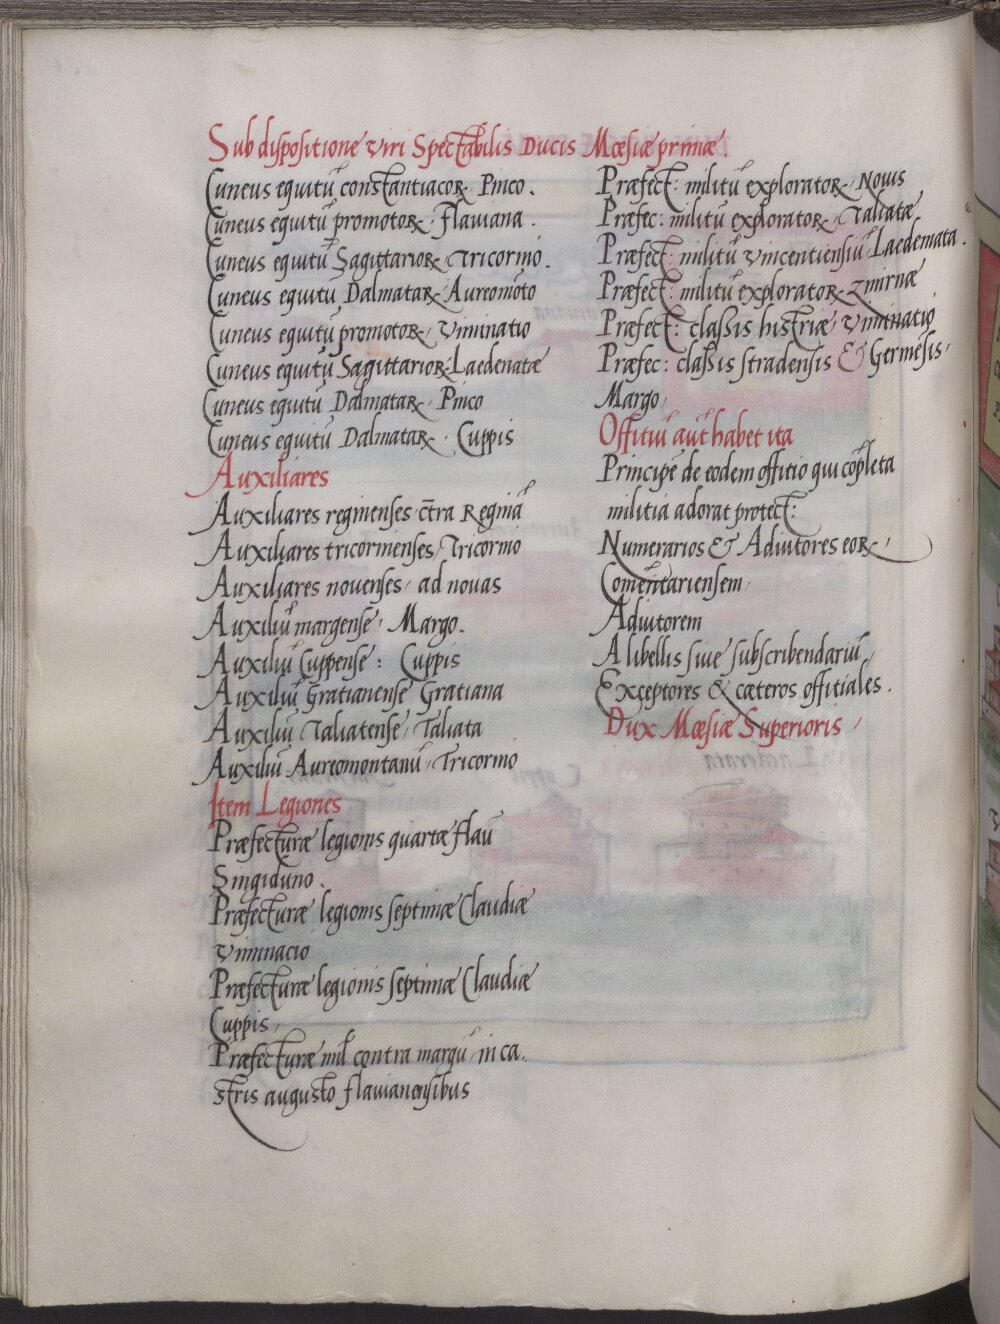 Sub dispositione viri Spectabilis Ducis Mœsiæ primæ.
Cuneus equitū constantiacoꝝ Pinco.
Cuneus equitū promotoꝝ, flaviana.
Cuneus equitū Sagittarioꝝ, Tricornio.
Cuneus equitū Dalmataꝝ, Aureomōto
Cuneus equitū promotoꝝ, viminatio
Cuneus equitū Sagittarioꝝ, Laedenatæ
Cuneus equitū Dalmataꝝ, Pinco
Cuneus equitū Dalmataꝝ, Cuppis
Auxiliares
Auxiliares reginenses c̄tra Reginā
Auxiliares tricornienses, Tricornio
Auxiliares novenses, ad novas
Auxiliū margense, Margo.
Auxiliū Cuppense: Cuppis
Auxiliū Gratianense Gratiana
Auxiliū Taliatense, Taliata
Auxiliū Aureomontanū, Tricornio
Item Legiones
Præfecturæ legionis quartæ flaū
Singiduno.
Præfecturæ legionis septimæ Claudiæ
viminacio
Præfecturæ legionis septimæ Claudiæ
Cuppis,
Præfecturæ mil contra margū, in ca.
stris augusto flavianensibus
Præfect: militū exploratoꝝ, Novis
Præfec: militū exploratoꝝ, Taliatæ
Præfect: militū vincentiensiū Laedemata.
Præfect: militū exploratoꝝ zmirnæ
Præfect: classis histriæ, viminatio
Præfec: classis stradensis & Germēsis,
Margo,
Offitiū aūt habet ita
Principē de eodem offitio qui cōpleta
militia adorat protect:
Numerarios & Adiutores eoꝝ,
Comētariensem,
Adiutorem
A libellis sive subscribendariū,
Exceptores & cæteros offitiales.
Dux Mœsiæ Superioris,